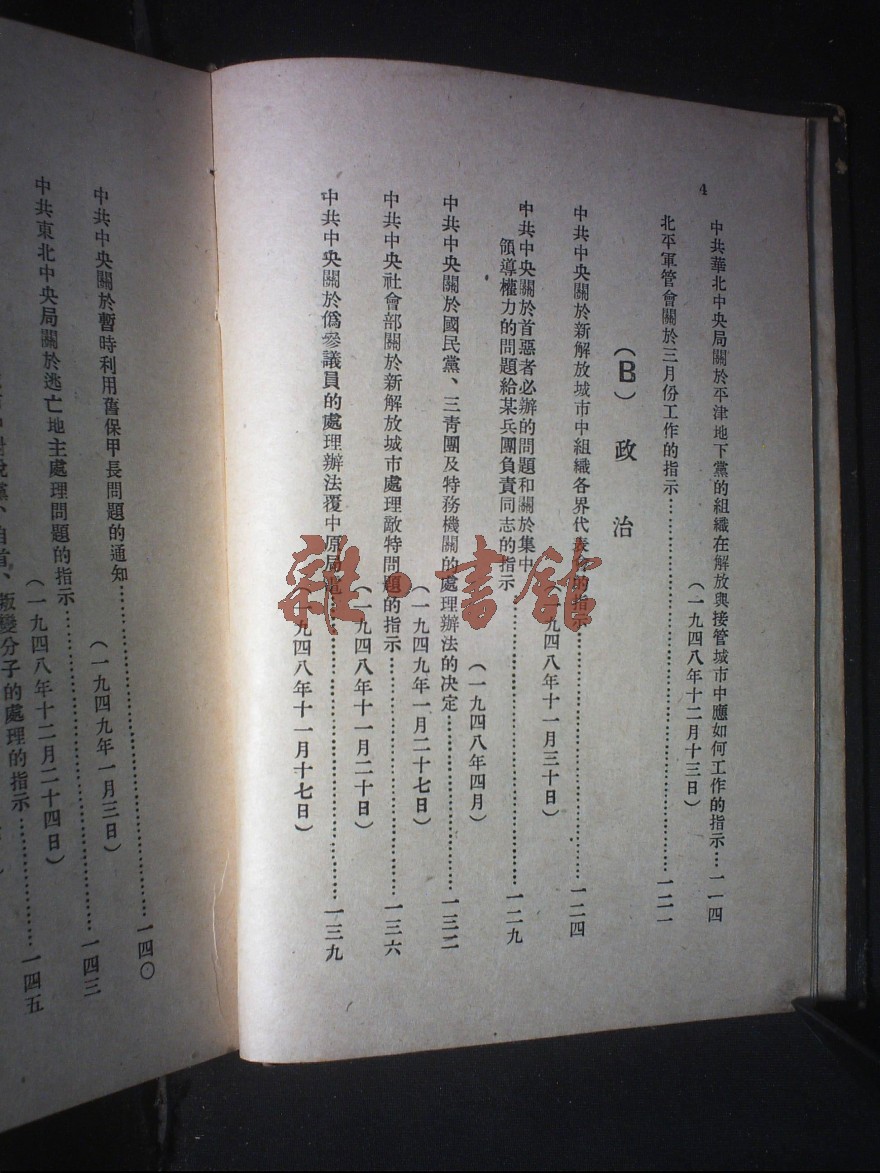 4
中共華北中央局關於平津地下黨的組織在解放與接管城市中應如何工作的指示…一一四
(一九四八年十二月十三日)
北平軍管會關於三月份工作的指示……一二一
(B) 政治
中共中央關於新解放城市中組織各界代表會的指示……一二四
(一九四八年十一月三十日)
中共中央關於首惡者必辦的問題和關於集中
領導權力的問題給某兵團負責同志的指示……一二九
(一九四八年四月)
中共中央關於國民黨、三青團及特務機關的處理辦法的決定……一三二
(一九四九年一月二十七日)
中共中央社會部關於新解放城市處理敵特問題的指示……一三六
(一九四八年十一月二十日)
中共中央關於僞參議員的處理辦法覆中原局電……一三九
(一九四八年十一月十七日)
中共中央關於暫時利用舊保甲長問題的通知……一四〇
(一九四九年一月三日)
中共東北中央局關於逃亡地主處理問題的指示……一四三
(一九四八年十二月二十四日)
黨、自首、叛變分子的處理的指示……一四五
雜·書館